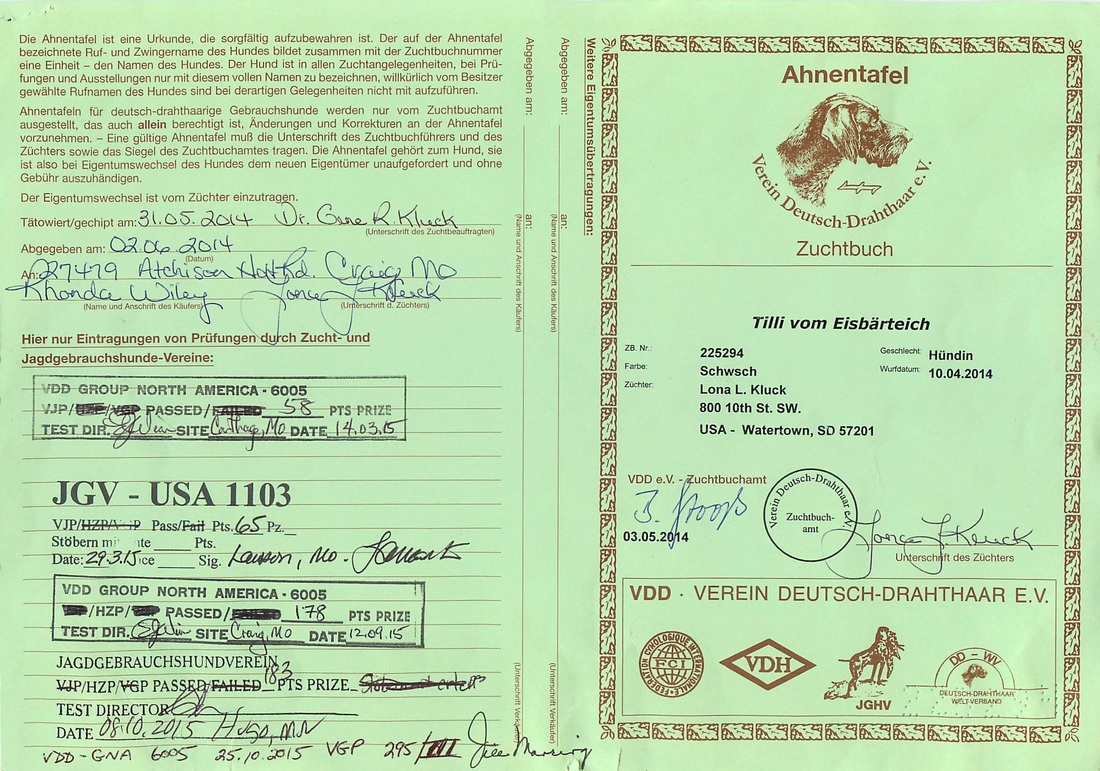 Die Ahnentafel ist eine Urkunde, die sorgfältig aufzubewahren ist. Der auf der Ahnentafel
bezeichnete Ruf- und Zwingername des Hundes bildet zusammen mit der Zuchtbuchnummer
eine Einheit – den Namen des Hundes. Der Hund ist in allen Zuchtangelegenheiten, bei Prü-
fungen und Ausstellungen nur mit diesem vollen Namen zu bezeichnen, willkürlich vom Besitzer
gewählte Rufnamen des Hundes sind bei derartigen Gelegenheiten nicht mit aufzuführen.
Ahnentafeln für deutsch-drahthaarige Gebrauchshunde werden nur vom Zuchtbuchamt
ausgestellt, das auch allein berechtigt ist, Änderungen und Korrekturen an der Ahnentafel
vorzunehmen. – Eine gültige Ahnentafel muß die Unterschrift des Zuchtbuchführers und des
Züchters sowie das Siegel des Zuchtbuchamtes tragen. Die Ahnentafel gehört zum Hund, sie
ist also bei Eigentumswechsel des Hundes dem neuen Eigentümer unaufgefordert und ohne
Gebühr auszuhändigen.
Der Eigentumswechsel ist vom Züchter einzutragen.
Tätowiert/gechipt am: 31.05.2014 Dr. Gene R. Kluck
(Unterschrift des Zuchtbeauftragten)
Abgegeben am: 02.06.2014
(Datum)
An: 27479 Atchison Holt Rd. Craig Mo
Rhonda Wiley
(Name und Anschrift des Käufers) (Unterschrift d. Züchters)
Hier nur Eintragungen von Prüfungen durch Zucht- und
Jagdgebrauchshunde-Vereine:
VDD GROUP NORTH AMERICA - 6005
VJP/HZP/VGP PASSED/FAILED 58 PTS PRIZE
TEST DIR. SITE Carthage, Mo DATE 14.03.15
JGV - USA 1103
VJP/HZP/VGP Pass/Fail Pts. 65 Pz.
Stöbern Pts.
Date: 29.3.15 Sig. Lawson, Mo.
VDD GROUP NORTH AMERICA - 6005
/HZP/ PASSED/ 178 PTS PRIZE
TEST DIR. SITE Craig, Mo DATE 12.09.15
JAGDGEBRAUCHSHUNDVEREIN
VJP/HZP/VGP PASSED/FAILED 183 PTS PRIZE
TEST DIRECTOR
DATE 08.10.2015 Hugo, MN
VDD-GNA 6005 25.10.2015 VGP 295/III
Abgegeben am:
an:
(Name und Anschrift des Käufers)
(Unterschrift Verkäufer)
Abgegeben am:
an:
(Name und Anschrift des Käufers)
(Unterschrift Verkäufer)
Weitere Eigentumsübertragungen:
Ahnentafel
Verein Deutsch-Drahthaar e.V.
Zuchtbuch
Tilli vom Eisbärteich
ZB. Nr.: 225294 Geschlecht: Hündin
Farbe: Schwsch Wurfdatum: 10.04.2014
Züchter: Lona L. Kluck
800 10th St. SW.
USA - Watertown, SD 57201
VDD e.V. - Zuchtbuchamt
03.05.2014
Verein Deutsch-Drahthaar e.V.
Zuchtbuch-
amt
Unterschrift des Züchters
VDD · VEREIN DEUTSCH-DRAHTHAAR E.V.
FEDERATION CYNOLOGIQUE INTERNATIONALE
FCI
VDH
JGHV
DD - WV
DEUTSCH-DRAHTHAAR
WELT-VERBAND